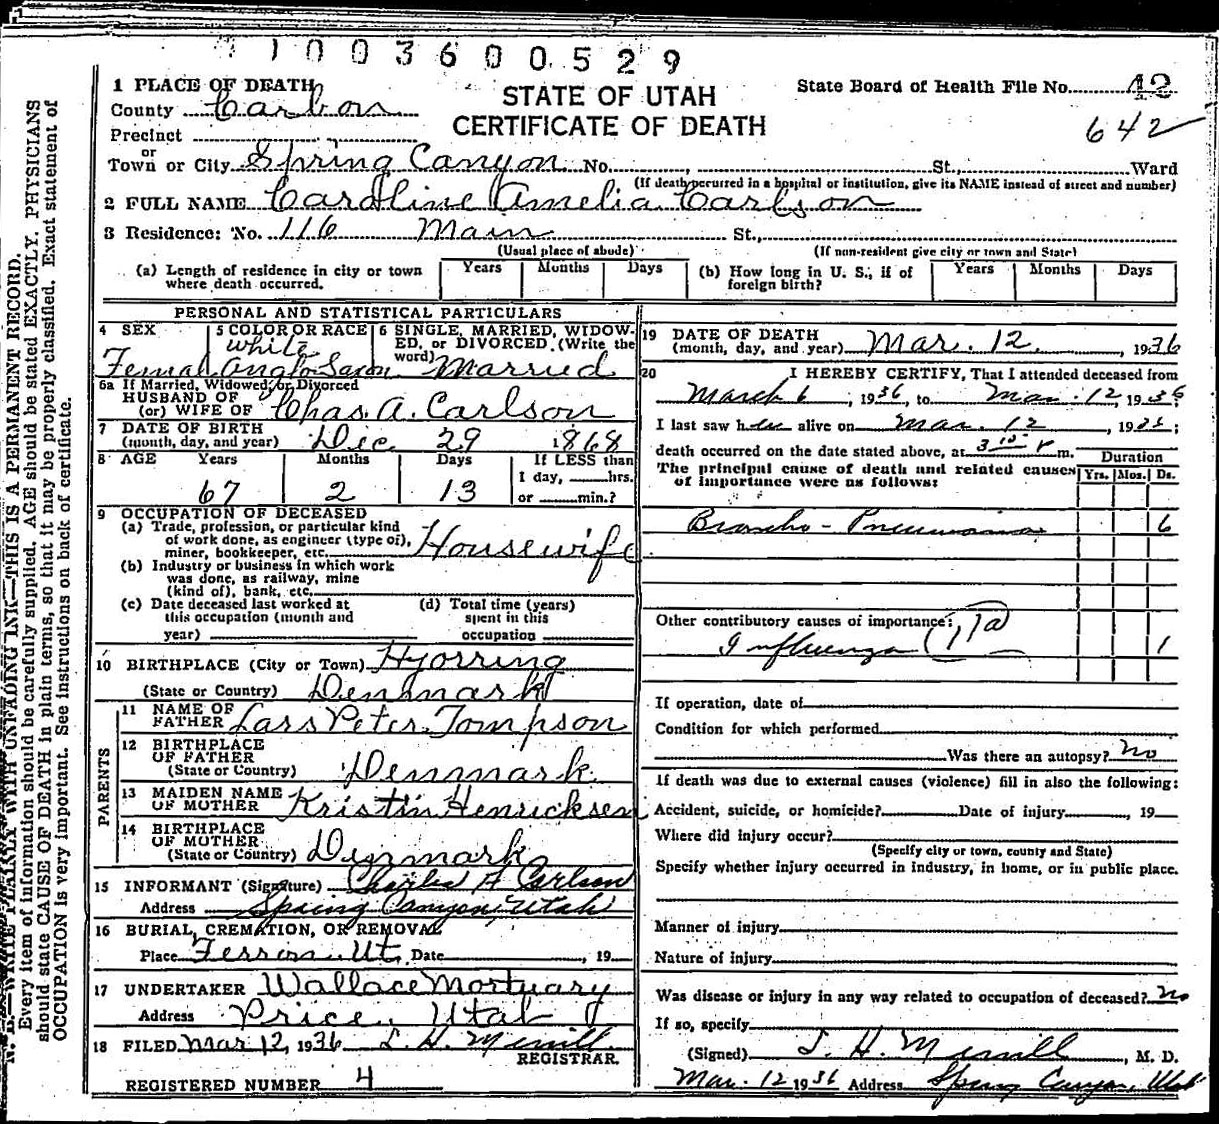 1003600529
1 PLACE OF DEATH
County Carbon
Precinct
or
Town or City Spring Canyon No. St., Ward
STATE OF UTAH
CERTIFICATE OF DEATH
State Board of Health File No. 42
642
(If death occurred in a hospital or institution, give its NAME instead of street and number)
2 FULL NAME Caroline Amelia Carlson
3 Residence: No. 116 Main St.,
(Usual place of abode) (If non-resident give city or town and State)
(a) Length of residence in city or town where death occurred. Years Months Days (b) How long in U. S., if of foreign birth? Years Months Days
PERSONAL AND STATISTICAL PARTICULARS
4 SEX Female
5 COLOR OR RACE White Anglo Saxon
6 SINGLE, MARRIED, WIDOWED, or DIVORCED. (Write the word) Married
6a If Married, Widowed, or Divorced
HUSBAND OF
(or) WIFE OF Chas. A. Carlson
7 DATE OF BIRTH
(month, day, and year) Dec. 29 1868
8 AGE Years Months Days If LESS than
67 2 13 1 day, hrs.
or min.?
9 OCCUPATION OF DECEASED
(a) Trade, profession, or particular kind
of work done, as engineer (type of),
miner, bookkeeper, etc. Housewife
(b) Industry or business in which work
was done, as railway, mine
(kind of), bank, etc.
(c) Date deceased last worked at
this occupation (month and
year)
(d) Total time (years)
spent in this
occupation
10 BIRTHPLACE (City or Town) Hjorring
(State or Country) Denmark
PARENTS
11 NAME OF
FATHER Lars Peter Tompson
12 BIRTHPLACE
OF FATHER
(State or Country) Denmark
13 MAIDEN NAME
OF MOTHER Kristin Henricksen
14 BIRTHPLACE
OF MOTHER
(State or Country) Denmark
15 INFORMANT (Signature) Charles A Carlson
Address Spring Canyon, Utah
16 BURIAL, CREMATION, OR REMOVAL
Place Ferron Ut. Date , 19
17 UNDERTAKER Wallace Mortuary
Address Price, Utah
18 FILED Mar 12, 1936 L. H. Merrill
REGISTRAR.
REGISTERED NUMBER 4
19 DATE OF DEATH
(month, day, and year) Mar. 12 , 1936
20 I HEREBY CERTIFY, That I attended deceased from
March 6, 1936, to Mar. 12, 1936
I last saw her alive on Mar. 12, 1936;
death occurred on the date stated above, at 3 10 P m.
The principal cause of death and related causes
of importance were as follows:
Duration
Yrs. Mos. Ds.
Broncho-Pneumonia 6
Other contributory causes of importance:
Influenza 11a 1
If operation, date of
Condition for which performed
Was there an autopsy? No
If death was due to external causes (violence) fill in also the following:
Accident, suicide, or homicide? Date of injury , 19
Where did injury occur?
(Specify city or town, county and State)
Specify whether injury occurred in industry, in home, or in public place.
Manner of injury
Nature of injury
Was disease or injury in any way related to occupation of deceased? No
If so, specify
(Signed) L. H. Merrill, M. D.
Mar. 12 1936 Address Spring Canyon, Utah
N. B.—WRITE PLAINLY WITH UNFADING INK—THIS IS A PERMANENT RECORD.
Every item of information should be carefully supplied. AGE should be stated EXACTLY. PHYSICIANS
should state CAUSE OF DEATH in plain terms, so that it may be properly classified. Exact statement of
OCCUPATION is very important. See instructions on back of certificate.